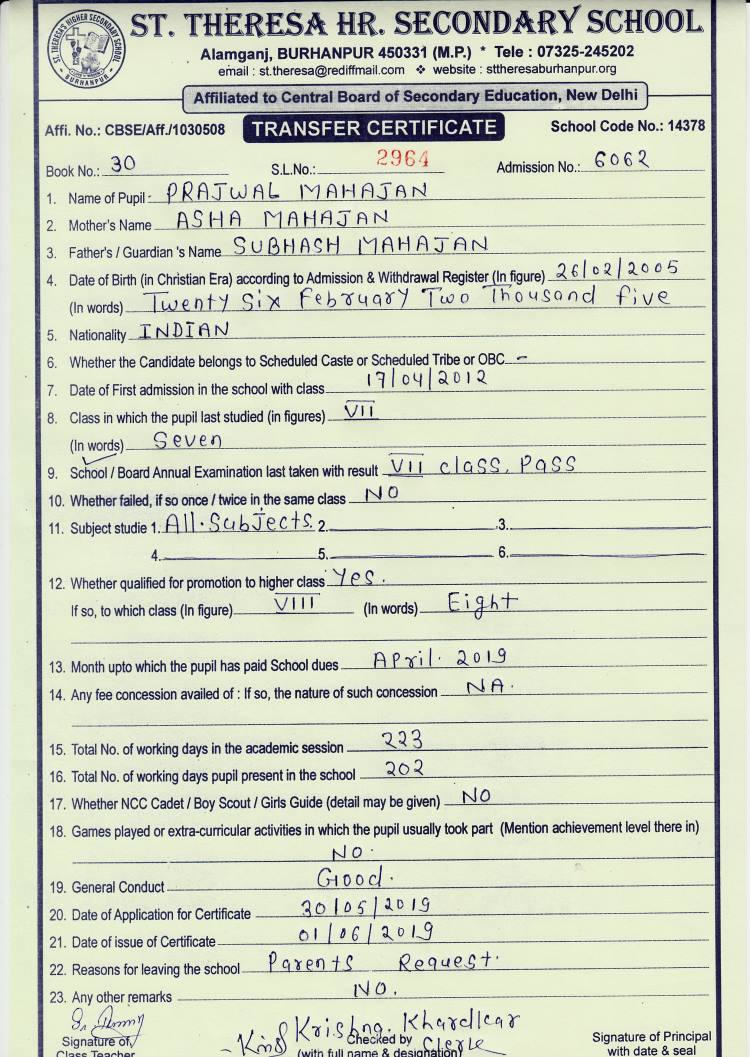 ST. THERESA'S HIGHER SECONDARY SCHOOL
BURHANPUR
ST. THERESA HR. SECONDARY SCHOOL
Alamganj, BURHANPUR 450331 (M.P.) * Tele : 07325-245202
email : st.theresa@rediffmail.com ❖ website : sttheresaburhanpur.org
Affiliated to Central Board of Secondary Education, New Delhi
Affi. No.: CBSE/Aff./1030508 TRANSFER CERTIFICATE School Code No.: 14378
Book No.: 30 S.L.No.: 2964 Admission No.: 6062
1. Name of Pupil : PRAJWAL MAHAJAN
2. Mother's Name ASHA MAHAJAN
3. Father's / Guardian 's Name SUBHASH MAHAJAN
4. Date of Birth (in Christian Era) according to Admission & Withdrawal Register (In figure) 26/02/2005
(In words) Twenty Six February Two Thousand five
5. Nationality INDIAN
6. Whether the Candidate belongs to Scheduled Caste or Scheduled Tribe or OBC -
7. Date of First admission in the school with class 17/04/2012
8. Class in which the pupil last studied (in figures) VII
(In words) Seven
9. School / Board Annual Examination last taken with result VII class, Pass
10. Whether failed, if so once / twice in the same class NO
11. Subject studie 1. All.Subjects 2. .3.
4. 5. 6.
12. Whether qualified for promotion to higher class Yes.
If so, to which class (In figure) VIII (In words) Eight
13. Month upto which the pupil has paid School dues April. 2019
14. Any fee concession availed of : If so, the nature of such concession NA.
15. Total No. of working days in the academic session 223
16. Total No. of working days pupil present in the school 202
17. Whether NCC Cadet / Boy Scout / Girls Guide (detail may be given) NO
18. Games played or extra-curricular activities in which the pupil usually took part (Mention achievement level there in)
NO.
19. General Conduct Good.
20. Date of Application for Certificate 30/05/2019
21. Date of issue of Certificate 01/06/2019
22. Reasons for leaving the school Parents Request.
23. Any other remarks NO.
Krishna. Khardkar
Signature of Checked by Clerk Signature of Principal
Class Teacher (with full name & designation) with date & seal